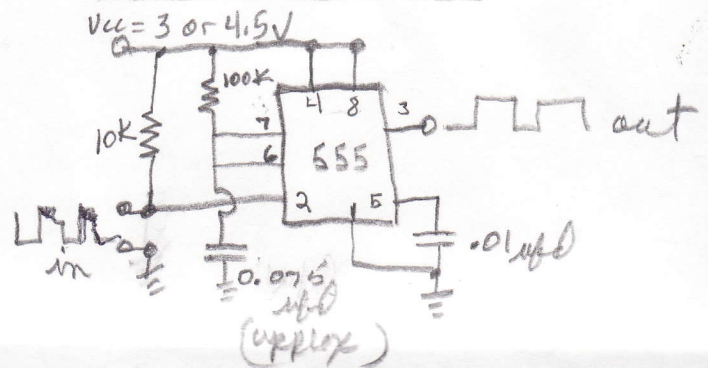 Vcc = 3 or 4.5V
100K
4 8
3
10K
7
6
555
out
2
5
.01 µfd
in
0.075
µfd
(approx)